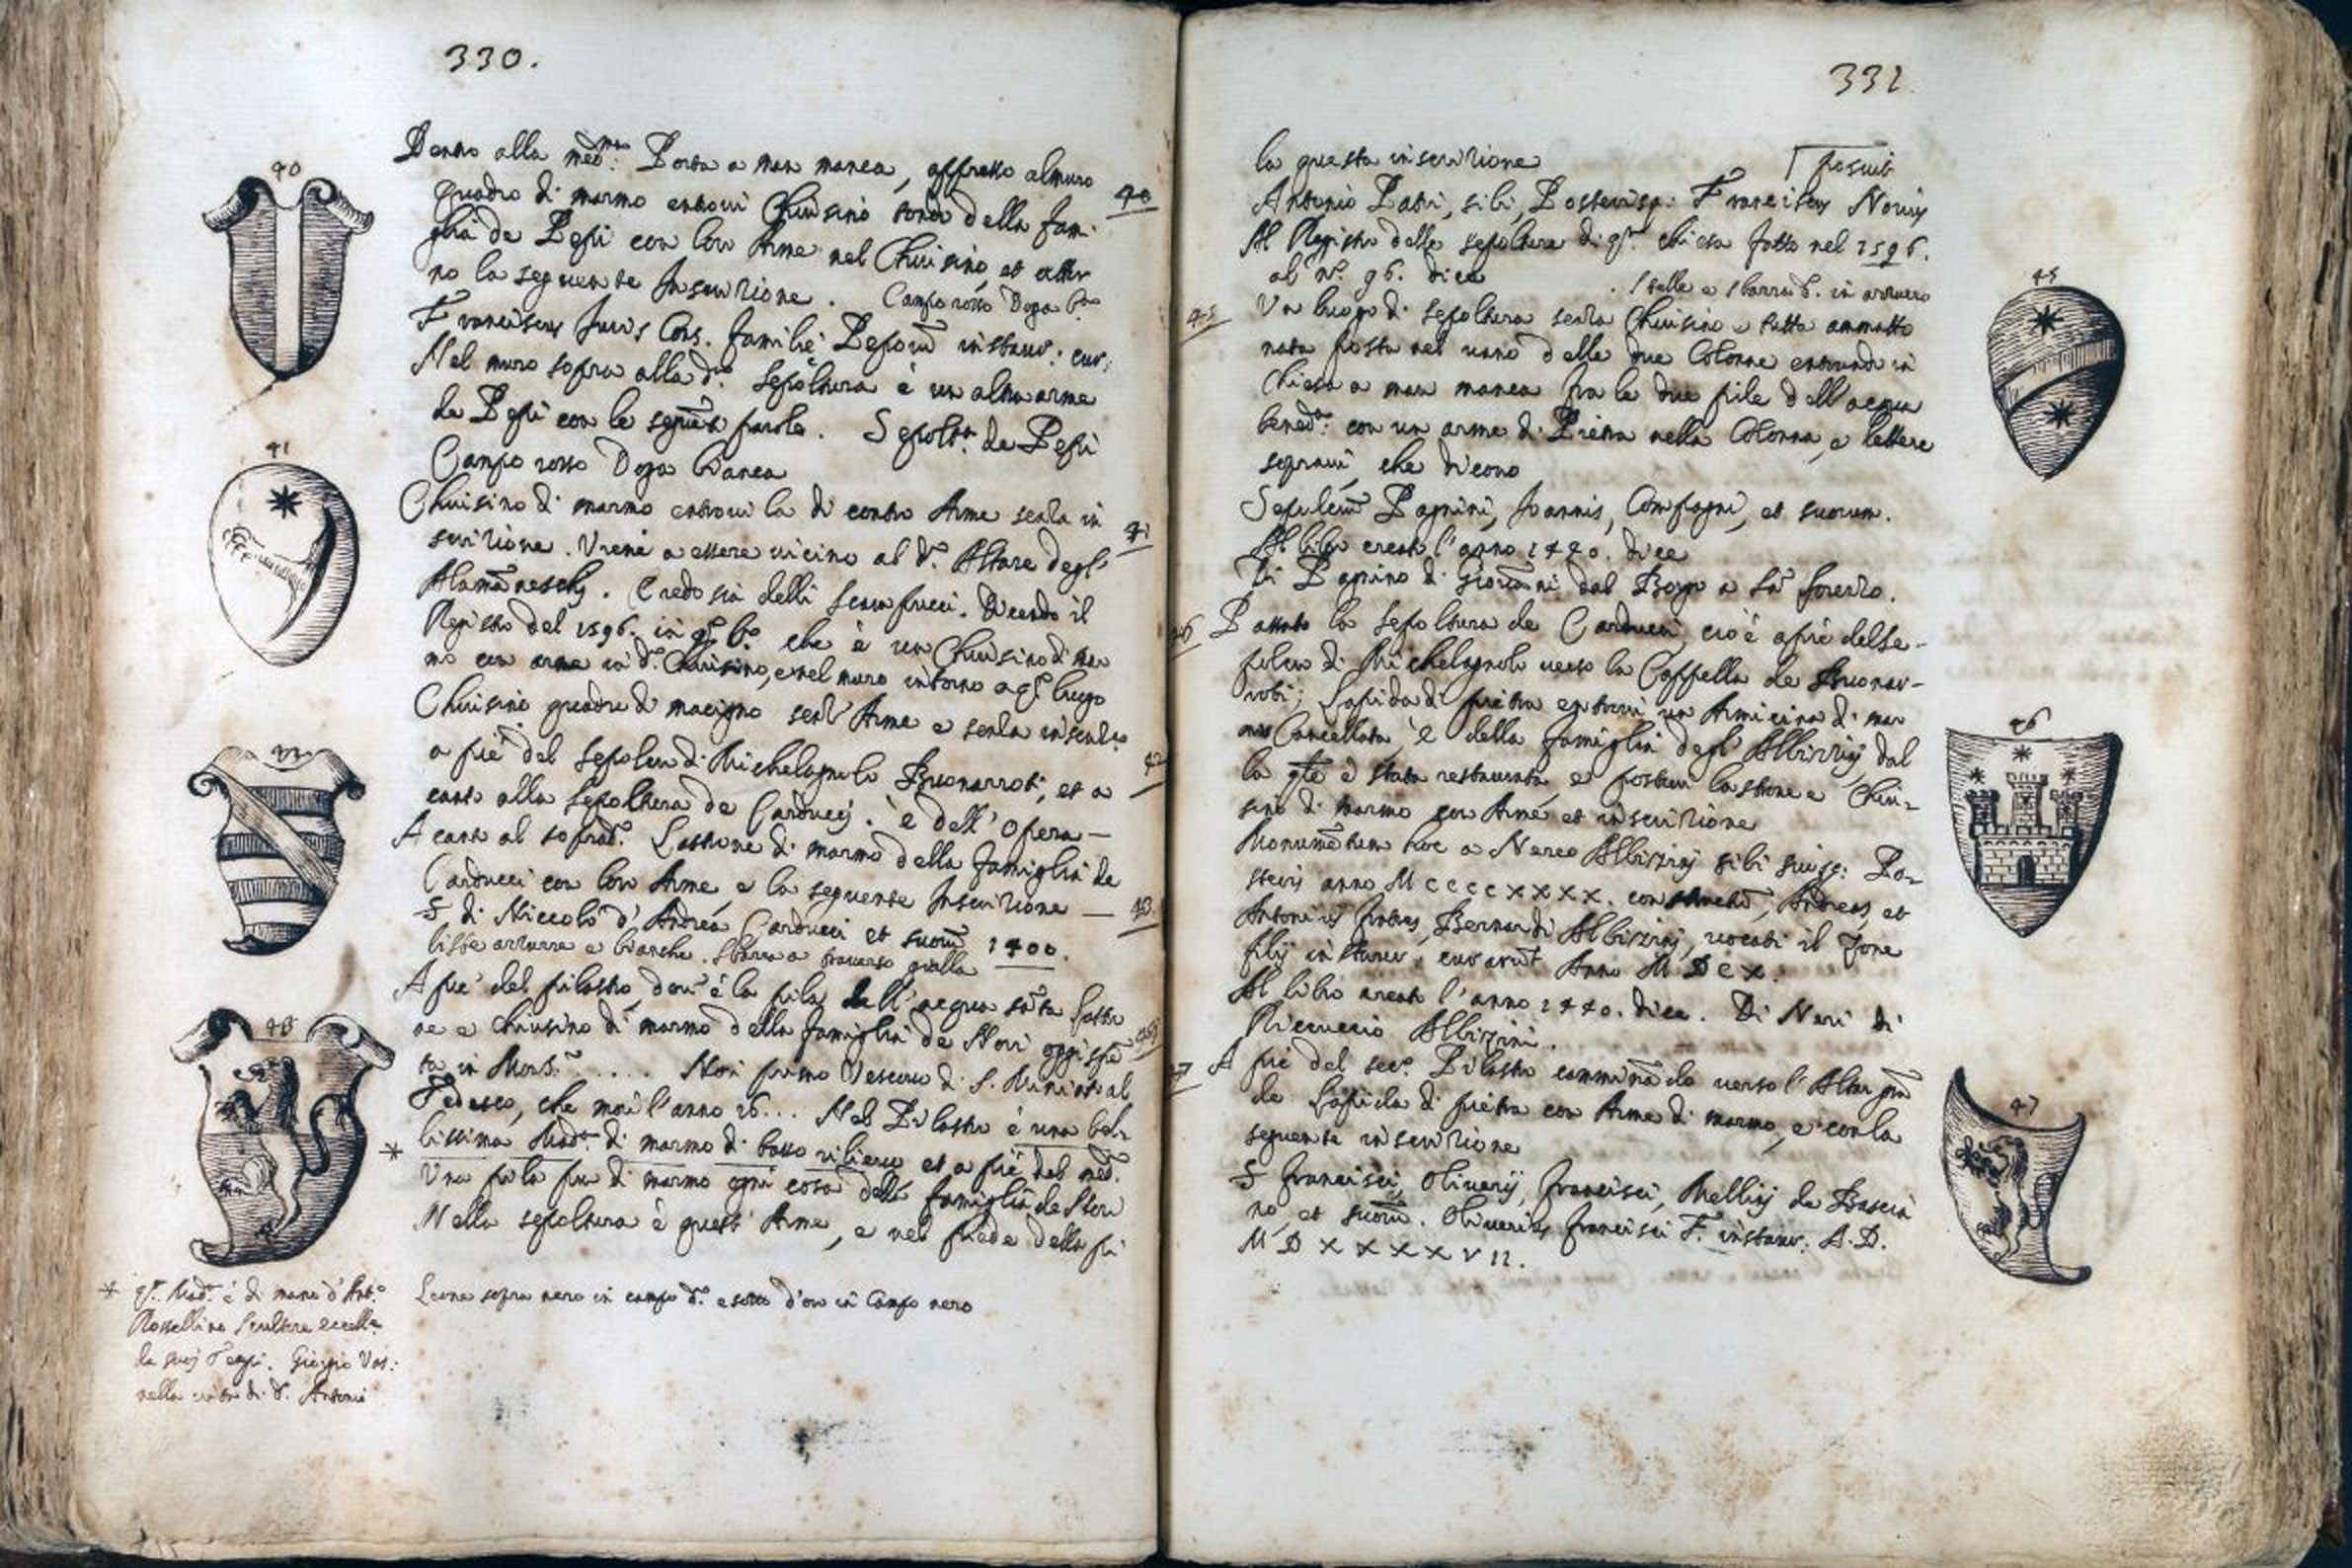 330.
40
Dentro alla med.ma Porta a man manca, appresso al muro
quadro di marmo entrovi Chiusino tondo della fami-
glia de Pepi con loro Arme nel Chiusino, et attor
no la seguente Inscrizione. Campo rosso Doga b.ca
Franciscus Juris Cons. familie Peporum instaur: cur:
Nel muro sopra alla d.a sepoltura è un altra arme
de Pepi con le seguenti parole. Sepolt.a de Pepi
Campo rosso Doga bianca
40
41
Chiusino di marmo entrovi la di contro Arme senza in
scrizione. Viene a essere vicino al d.o Altare degl'
Alamanneschi. Credo sia delli Dicendo il
Registro del 1596. in q.o che è un Chiusino di mar
mo con arme in d.o Chiusino, e nel muro intorno a q.o luogo
41
Chiusino quadro di macigno senz' Arme e senza inscriz.e
a piè del sepolcro di Michelagnolo Buonarroti, et a
canto alla sepoltura de Carducci. è dell' Opera —
42
A canto al soprad.o Lastrone di marmo della famiglia de
Carducci con loro Arme, e la seguente Inscrizione —
S di Niccolò d' Andrea Carducci et suorum 1400.
liste azzurre e bianche. sbarra a traverso gialla
43.
A piè del pilastro, dov' è la pila dell' acqua santa lastro
ne e chiusino di marmo della famiglia de Nori oggi spen
ta in Mons.r ..... Nori primo Vescovo di S. Miniato al
Tedesco, che morì l'anno 16... Nel Pilastro è una bel-
* lissima Mad.a di marmo di basso rilievo et a piè del med.o
Una pila pur di marmo ogni cosa della famiglia de Nori
Nella sepoltura è quest' Arme, e nel piede della pi
Leone sopra nero in campo d.o e sotto d'oro in Campo nero
* q.a Mad.a è di mano d'Ant.o
Rossellino scultore eccell.e
de suoi Tempi. Giorgio Vas:
nella vita di d. Antonio
331
la questa inscrizione
posuit
Antonio Patri, sibi, Posterisq: Franciscus Norius
Al Registro delle sepolture di q.a chiesa fatto nel 1596.
al N.o 96. dice
Stelle e sbarra in azzurro
45
Un luogo di sepoltura senza Chiusino e tutta ammatto
nata posta nel vano delle due Colonne entrando in
Chiesa a man manca fra le due pile dell' acqua
bened.a con un arme di Pietra nella Colonna, e lettere
sopravi, che dicono
Sepulcrum Pagnini, Joannis, Compagni, et suorum.
Al libro creato l'anno 1440. dice
Di Pagnino di Giovanni dal Borgo a San Lorenzo.
45
46
Passato la sepoltura de Carducci, cioè a piè del se-
polcro di Michelagnolo verso la Cappella de Buonar-
roti; Lapida di pietra entrovi un Armicina di mar
mo Cancellata, è della famiglia degl' Albizzini dal
la q.le è stata restaurata, e postovi lastrone e Chiu-
sino di marmo con Arme et inscrizione
Monumentum hoc a Nereo Albizzini sibi suisq: Po-
steris anno MCCCCXXXX. Andreas, et
Antonius fratres, Bernardi Albizzini, vocati il Zone
filij instaur. curarunt Anno MDCX.
Al libro creato l'anno 1440. dice. Di Neri di
Ricevuccio Albizzini.
46
47
A piè del sec.o Pilastro camminando verso l'Altar gran
de Lapida di pietra con Arme di marmo, e con la
seguente inscrizione
S Francisci, Oliverij, Francisci, Mellini da Bascia
no, et suorum. Oliverius Francisci F. instaur: A.D.
MDXXXXVII.
47